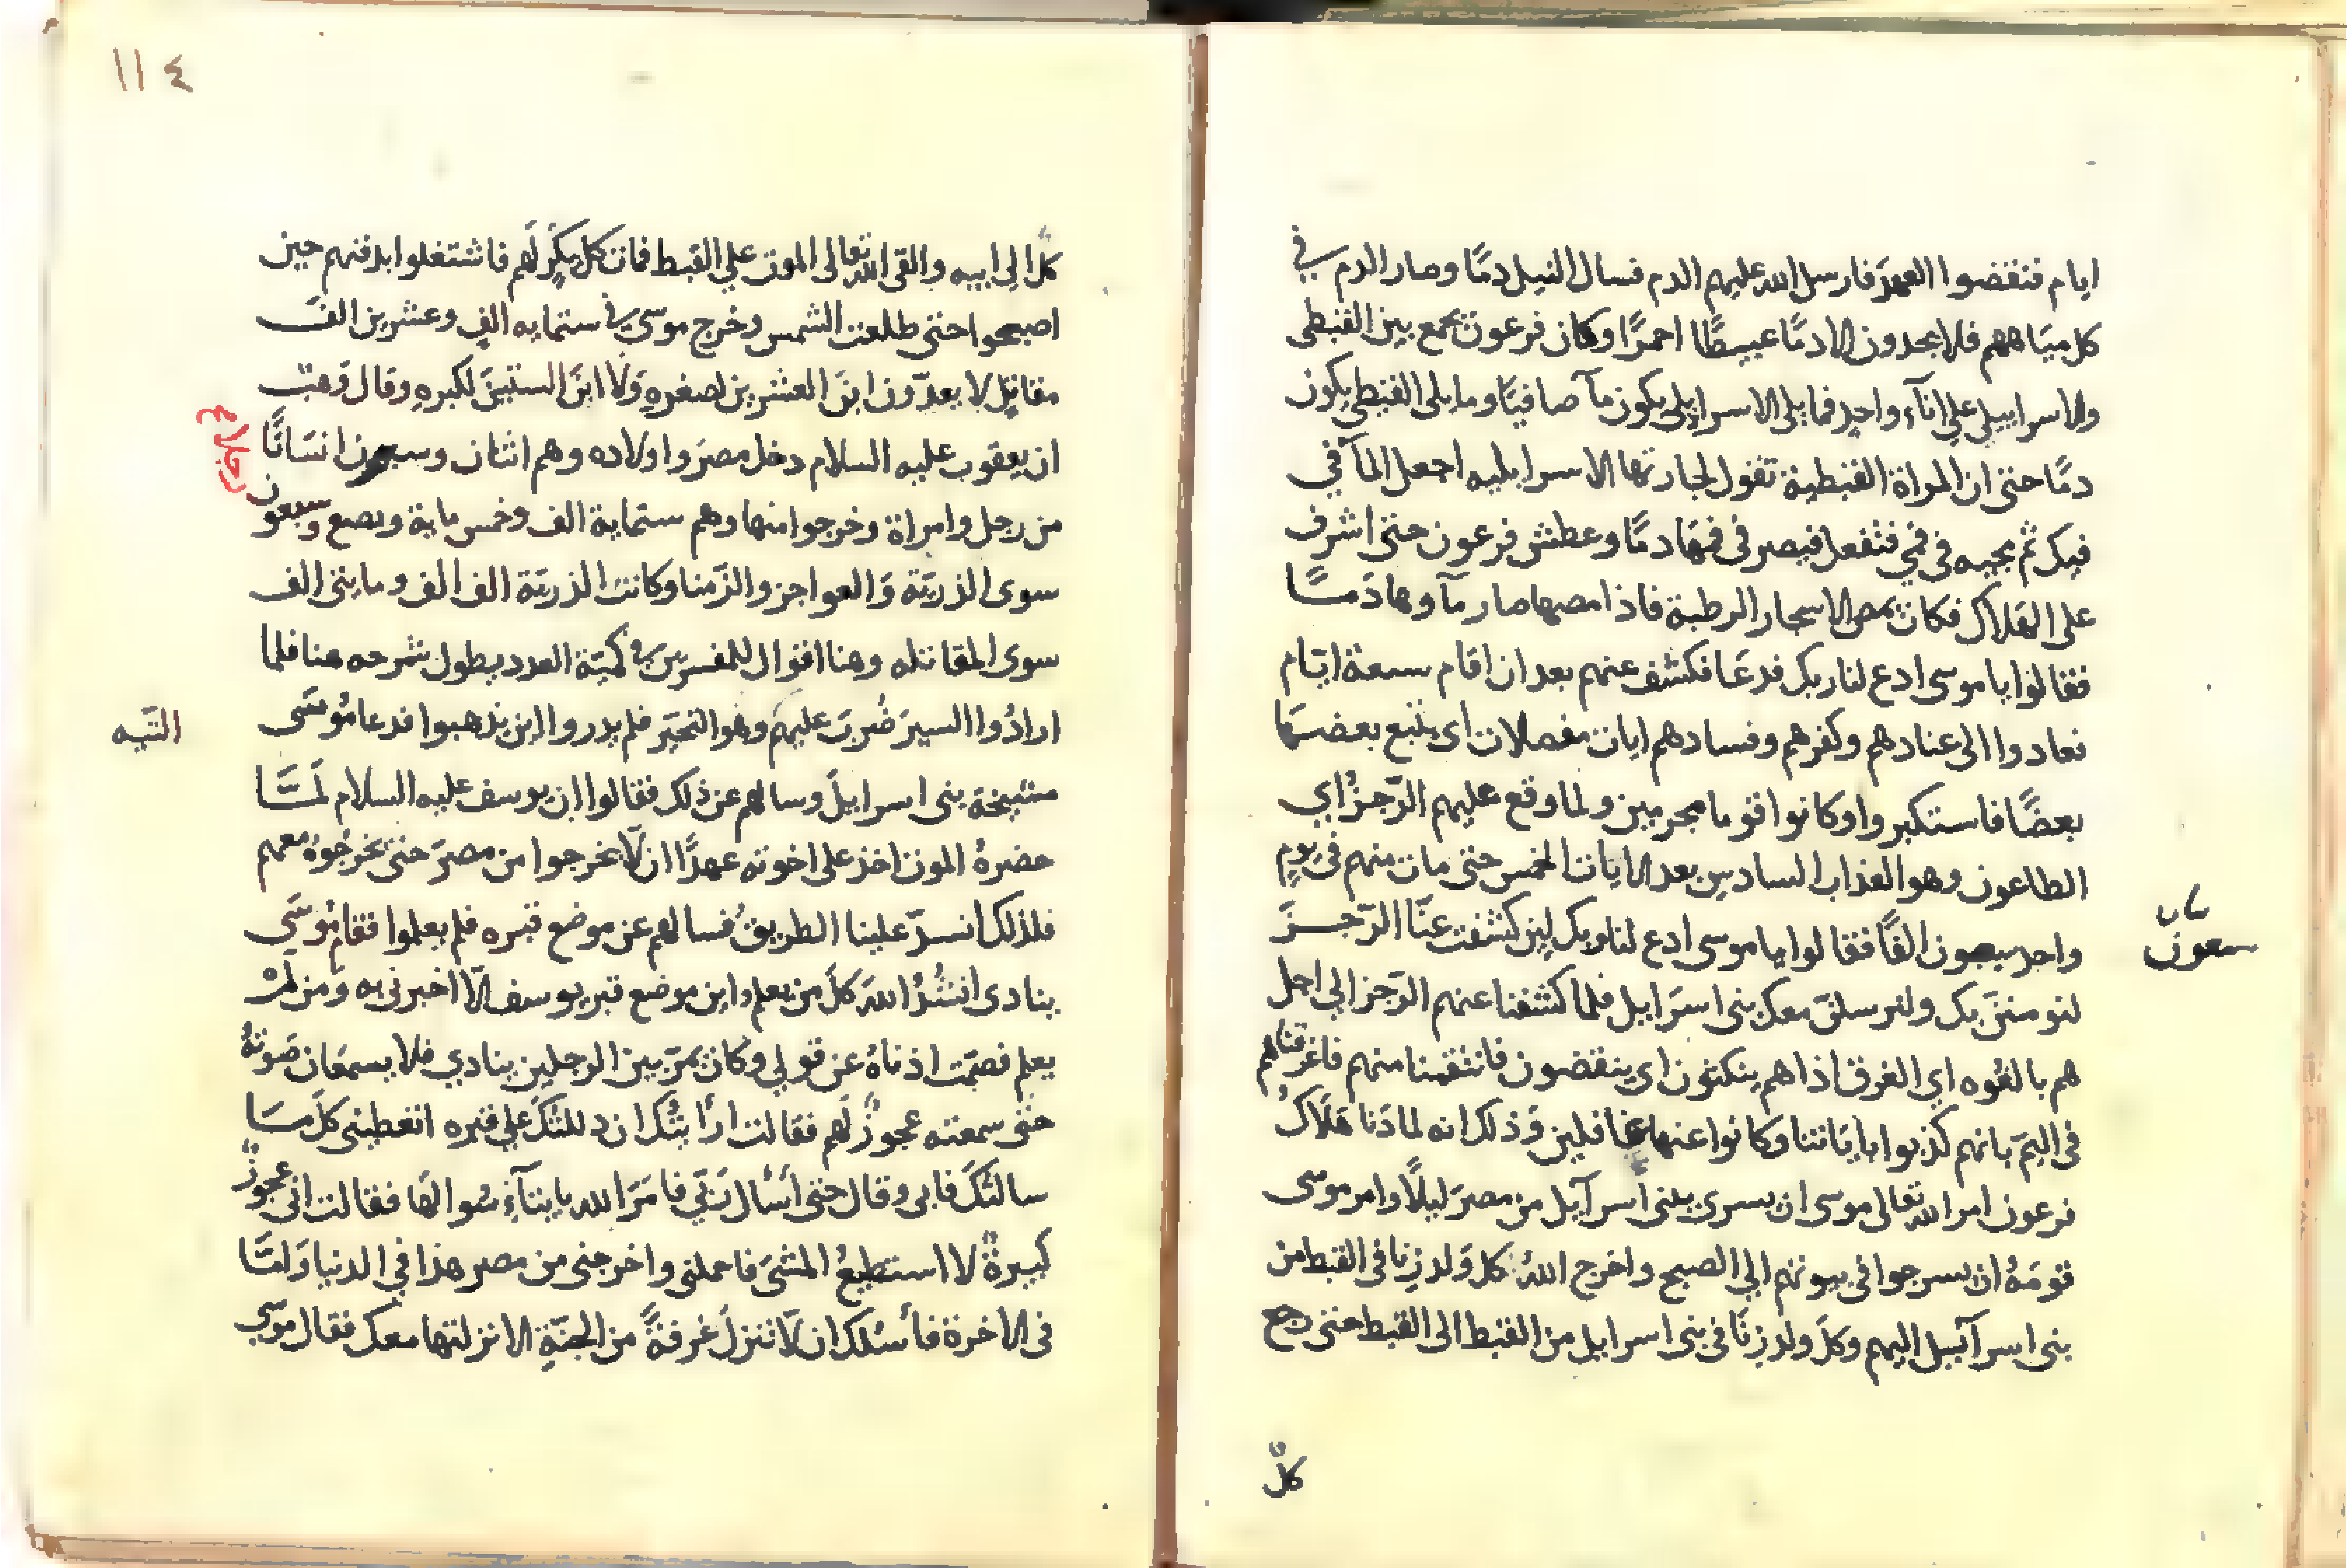 ايام فنقضوا العهدَ فارسل الله عليهم الدم فسال النيل دمًا وصار الدم في
كل ميَاههم فلا يجدون الا دمًا عبيطًا احمرًا وكان فرعون يجمع بين القبطى
والاسراييلي علي انآء واحدٍ فما يلى الاسرايلي يكون مآ صافيًا وما يلى القبطي يكون
دمًا حتى ان المراة القبطية تقول لجارتها الاسرايليه اجعل المآ في
فيكِ ثم مجيه فى فمي فتفعل فيصير فى فمهَا دمًا وعطش فرعون حتى اشرف
على الهَلاك فكان يمص الاشجار الرطبة فاذا مصها صار مآوها دَمــًا
فقالوا يا موسى ادع لنا ربك فدعَا فكشف عنهم بعد ان اقام سبعة ايّام
فعادوا الى عنادهم وكفرهم وفسادهم ايات مفصلات اى يتبع بعضهَا
بعضًا فاستكبروا وكانوا قوما مجرمين ولما وقع عليهم الرّجزُ اي
الطاعون وهو العذاب السادس بعد الايات الخمس حتى مات منهم فى يومٍ
واحد سبعون الفًا فقالوا يا موسى ادع لنا ربك لين كشفت عنّا الرّجــزَ
لنومننّ بك ولنرسلنّ معك بنى اسرَايل فلما كشفنا عنهم الرّجز الي اجل
هم بالغُوه اي الغرق اذا هم ينكثون اى ينقضون فانتقمنا منهم فاغرقناهم
فى اليمّ بانهم كذبوا باياتنا وكانوا عنها غافلين وَذلك انه لما دَنا هَلَاكُ
فرعون امر الله تعالى موسى ان يسرى ببنى اسرآيل من مصرَ ليلًا وامر موسى
قومَهُ ان يسرجوا فى بيوتهم الي الصبح واخرج اللهُ كل وَلد زِنا فى القبط من
بنى اسرآئيل اليهم وكلّ ولد زِنًا فى بنى اسرايل من القبط الى القبط حتى رجع
سبعون
كلٌّ
١١٤
كلٌّ الى ابيه والقى الله تعالى الموت علي القبط فمات كل بِكرٍ لَهم فاشتغلوا بدفنهم حين
اصبحوا حتى طلعت الشمس وخرج موسى في ستمايه الفٍ وعشرين الفَ
مقاتِل لا يعدّون ابنَ العشرين لصغرهِ وَلا ابنَ الستين لكبرهِ وقال وَهب
ان يعقوب عليه السلام دخل مصرَ واولاده وهم اثنان وسبعون انسَانًا
من رجل وامراة وخرجوا منها وهم ستماية الف وخمس ماية وبضع وسبعون
رجلا
سوى الذريّة وَالعواجز والزّمنا وكانت الذريّة الف الف ومايتى الف
سوى المقاتله وهنا اقوال للمفسرين في كميّة العدد يطول شرحه هنا فلما
ارادُوا السيرَ ضُربَ عليهم وهو التحيّر فلم يدروا اين يذهبوا فدعا مُوسَى
التّيه
مشيخة بنى اسرايلَ وسالهم عن ذلك فقالوا ان يوسف عليه السلام لَمــَّا
حضرهُ الموت اخذ على اخوته عهدًا ان لّا يخرجوا من مصرَ حتى يخرجُوهُ معهم
فلذلك انسدّ علينا الطريقُ فسالهم عن موضع قبره فلم يعلموا فقام مُوسَي
ينادى انشُدُ اللهَ كلَّ من يعلم اين موضع قبر يوسف الّا اخبرنى به وَمن لمْ
يعلم فصمّت اذناهُ عن قولي وكان يمرّ بين الرجلين ينادي فلا يسمعَان صَوتهُ
حتى سمعته عجوزٌ لَهم فقالت ارَأيتُكَ ان دللتُكَ علي قبره اتعطينى كلّ مــَا
سالتُكَ فابى وقال حتى أسْأل رَبّي فامَرَ الله بايتآءِ سُوالهَا فقالت انى عجوزٌ
كبيرةٌ لا استطيعُ المشىَ فاحملنى واخرجنى من مصر هذا في الدنيا وَامّا
فى الاخرة فأسئلك ان لّا تنزلَ غرفةً من الجنّةِ الا نزلتها معك فقال موسي